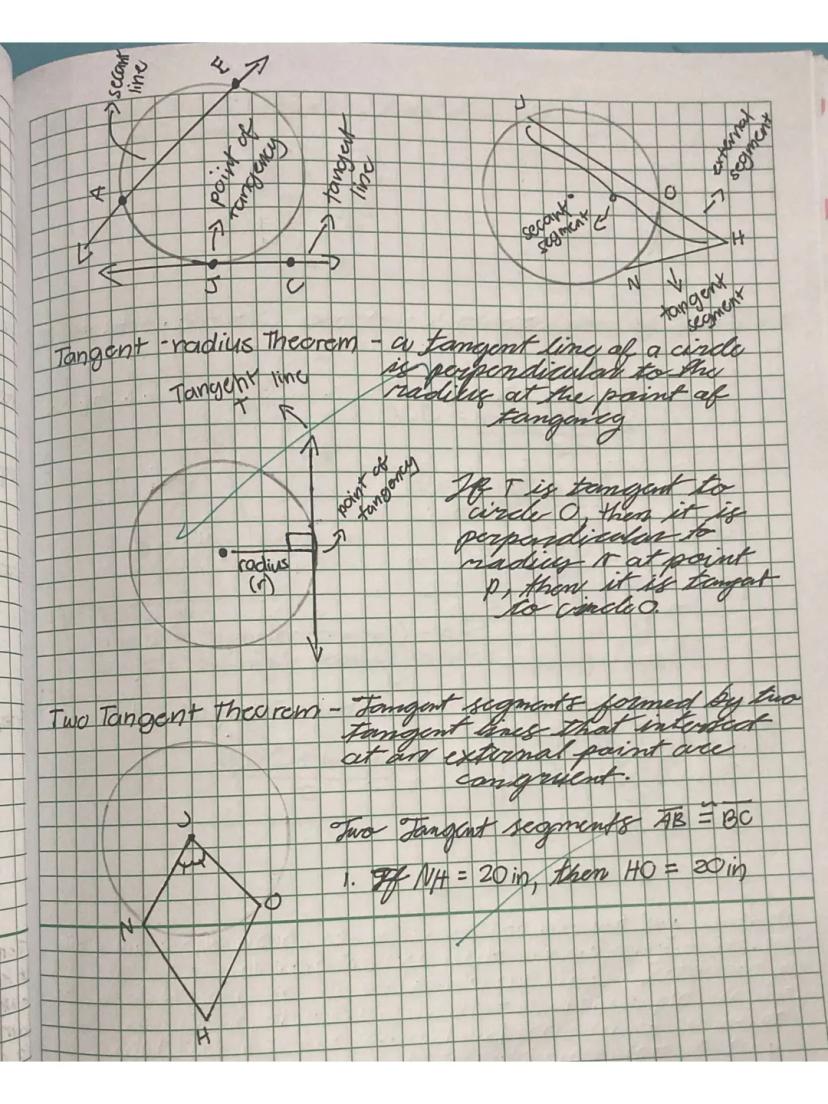 secant line
E
A
point of tangency
tangent line
J
C
J
O
external segment
secant segment
H
N
tangent segment
Tangent-radius Theorem - a tangent line of a circle
is perpendicular to the
radius at the point of
tangency
Tangent line
T
point of tangency
radius
(r)
If T is tangent to
circle O, then it is
perpendicular to
radius r at point
P, then it is tangat
to circle O.
Two Tangent Theorem - Tangent segments formed by two
tangent lines that intersect
at an external point are
congruent.
Two Tangent segments AB ≅ BC
1. If NH = 20 in, then HO = 20 in
J
N
O
H